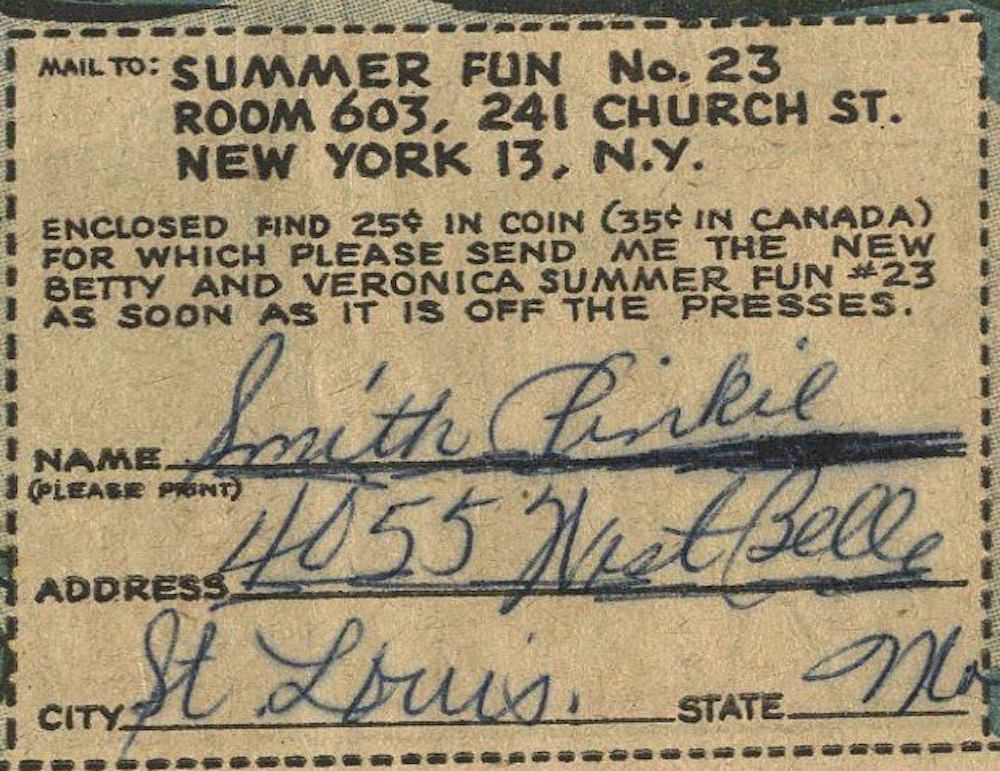 MAIL TO: SUMMER FUN No. 23
ROOM 603, 241 CHURCH ST.
NEW YORK 13, N.Y.
ENCLOSED FIND 25¢ IN COIN (35¢ IN CANADA)
FOR WHICH PLEASE SEND ME THE NEW
BETTY AND VERONICA SUMMER FUN #23
AS SOON AS IT IS OFF THE PRESSES.
NAME Smith Pinkie
(PLEASE PRINT)
ADDRESS 4055 West Belle
CITY St Louis. STATE Mo